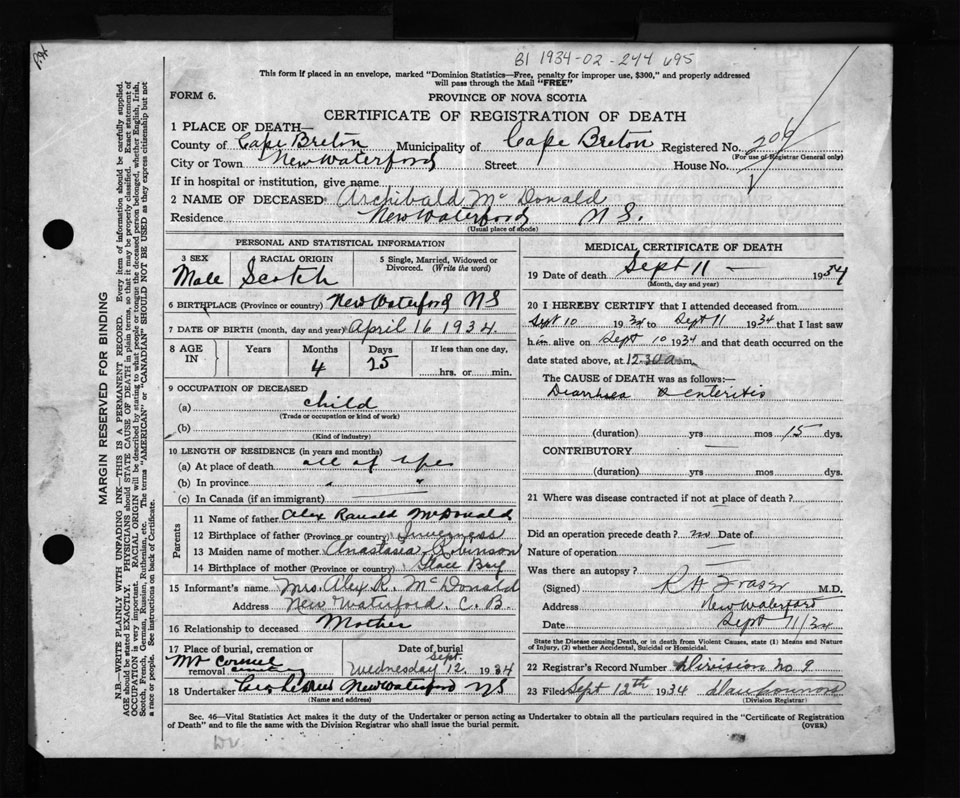 B1 1934-02-244 695
This form if placed in an envelope, marked "Dominion Statistics—Free, penalty for improper use, $300," and properly addressed
will pass through the Mail "FREE"
FORM 6.
PROVINCE OF NOVA SCOTIA
CERTIFICATE OF REGISTRATION OF DEATH
1 PLACE OF DEATH—
County of Cape Breton Municipality of Cape Breton Registered No. 209
(For use of Registrar General only)
City or Town New Waterford Street House No.
If in hospital or institution, give name
2 NAME OF DECEASED Archibald Mc Donald
Residence New Waterford N S.
(Usual place of abode)
PERSONAL AND STATISTICAL INFORMATION
3 SEX Male
RACIAL ORIGIN Scotch
5 Single, Married, Widowed or Divorced. (Write the word)
6 BIRTHPLACE (Province or country) New Waterford NS
7 DATE OF BIRTH (month, day and year) April 16 1934.
8 AGE IN Years Months 4 Days 25 If less than one day, hrs. or min.
9 OCCUPATION OF DECEASED
(a) child
(Trade or occupation or kind of work)
(b)
(Kind of industry)
10 LENGTH OF RESIDENCE (in years and months)
(a) At place of death all of life
(b) In province " "
(c) In Canada (if an immigrant)
Parents
11 Name of father Alex Ranald McDonald
12 Birthplace of father (Province or country) Inverness
13 Maiden name of mother Anastasia Robinson
14 Birthplace of mother (Province or country) Glace Bay
15 Informant's name Mrs. Alex R. McDonald
Address New Waterford C. B.
16 Relationship to deceased Mother
17 Place of burial, cremation or removal Mt Carmel
Date of burial Wednesday Sept. 12 1934
18 Undertaker New Waterford NS
(Name and address)
MEDICAL CERTIFICATE OF DEATH
19 Date of death Sept 11 — 1934
(Month, day and year)
20 I HEREBY CERTIFY that I attended deceased from
Sept 10 1934 to Sept 11 1934 that I last saw
him alive on Sept 10 1934 and that death occurred on the
date stated above, at 12.30 a m.
The CAUSE OF DEATH was as follows:—
Diarrhoea & enteritis
(duration) yrs mos 15 dys.
CONTRIBUTORY —
(duration) yrs mos dys.
21 Where was disease contracted if not at place of death?
Did an operation precede death? no Date of
Nature of operation —
Was there an autopsy? —
(Signed) R H Fraser M.D.
Address New Waterford
Date Sept 11/34
State the Disease causing Death, or in death from Violent Causes, state (1) Means and Nature
of Injury, (2) whether Accidental, Suicidal or Homicidal.
22 Registrar's Record Number Division no 9
23 Filed Sept 12th 1934 Dan Connors
(Division Registrar)
Sec. 46—Vital Statistics Act makes it the duty of the Undertaker or person acting as Undertaker to obtain all the particulars required in the "Certificate of Registration
of Death" and to file the same with the Division Registrar who shall issue the burial permit. (OVER)
MARGIN RESERVED FOR BINDING
N.B.—WRITE PLAINLY WITH UNFADING INK—THIS IS A PERMANENT RECORD. Every item of information should be carefully supplied.
AGE should be stated EXACTLY. PHYSICIANS should STATE CAUSE OF DEATH in plain terms, so that it may be properly classified. Exact statement of
OCCUPATION is very important. RACIAL ORIGIN will be described by stating to what people or tongue the deceased person belonged, whether English, Irish,
Scotch, French, German, Russian, Ruthenian, etc. The terms "AMERICAN" or "CANADIAN" SHOULD NOT BE USED as they express citizenship but not
a race or people. See instructions on back of Certificate.